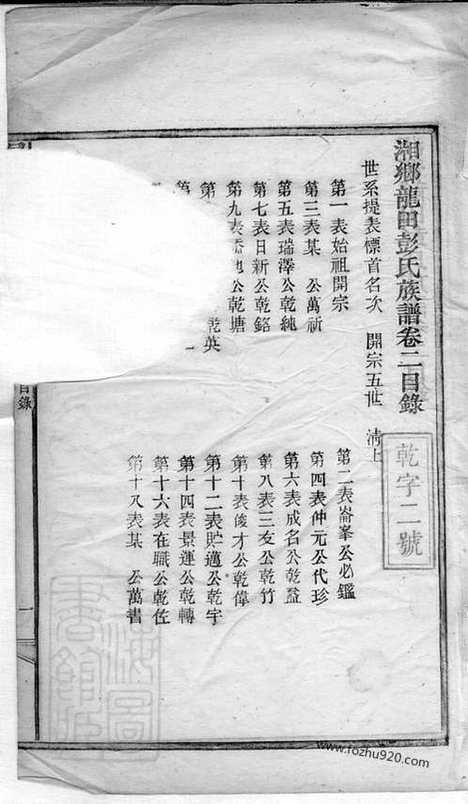 湘鄉龍田彭氏族譜卷二目錄
乾字二號
世系提表標首名次 開宗五世 淸上
第一表始祖開宗
第二表崙峯公必鑑
第三表某 公萬祈
第四表仲元公代珍
第五表瑞澤公乾純
第六表成名公乾益
第七表日新公乾銘
第八表三友公乾竹
第九表 公乾塘
第十表俊才公乾偉
第 乾英
第十二表貯邁公乾宇
第
第十四表景運公乾轉
第十六表在職公乾佐
第十八表某 公萬書
目錄
www.fozhu920.com